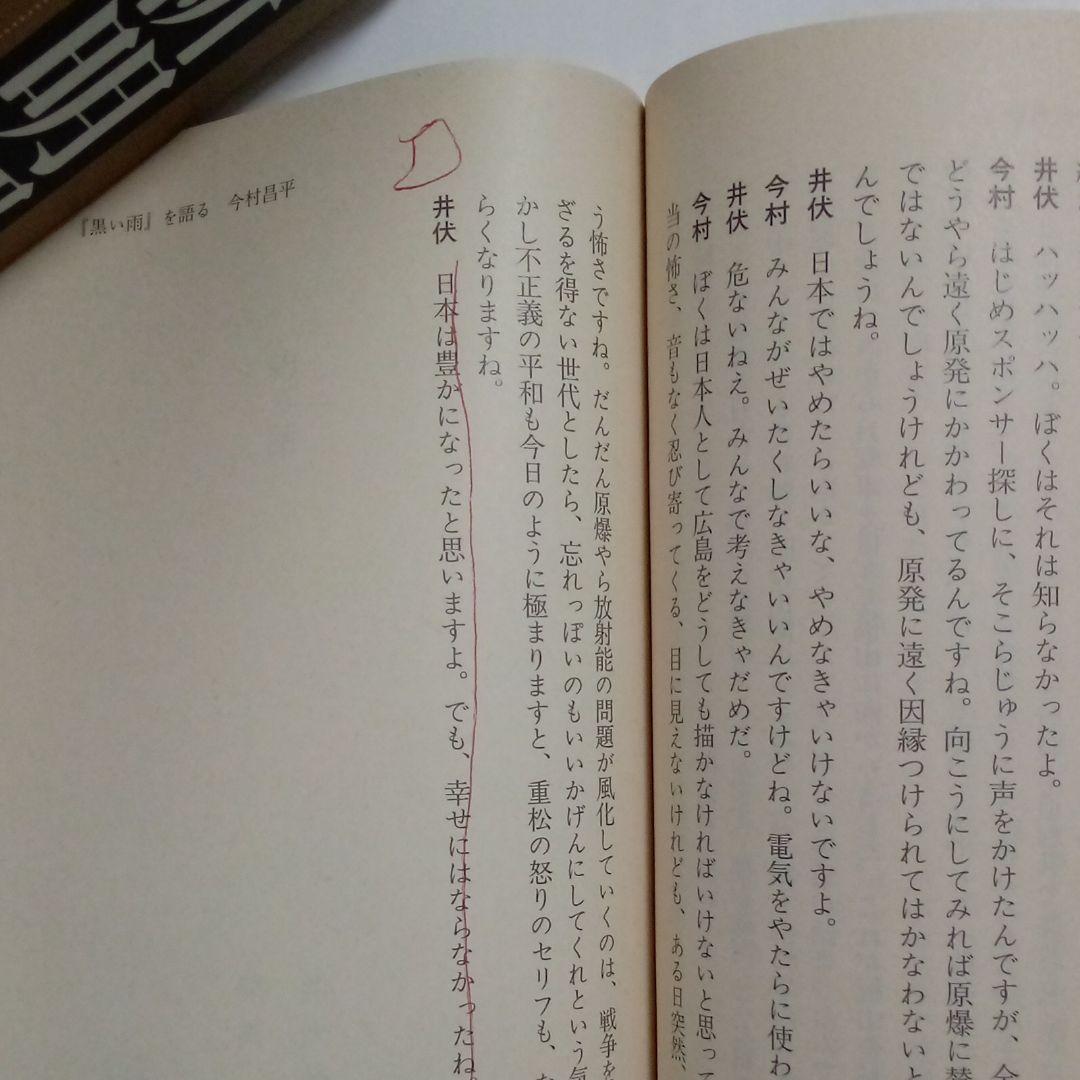 井伏　ハッハッハ。ぼくはそれは知らなかったよ。
今村　はじめスポンサー探しに、そこらじゅうに声をかけたんですが、
どうやら遠く原発にかかわってるんですね。向こうにしてみれば原爆に
ではないんでしょうけれども、原発に遠く因縁つけられてはかなわないと
んでしょうね。
井伏　日本ではやめたらいいな、やめなきゃいけないですよ。
今村　みんながぜいたくしなきゃいいんですけどね。電気をやたらに使わ
井伏　危ないねえ。みんなで考えなきゃだめだ。
今村　ぼくは日本人として広島をどうしても描かなければいけないと思って
当の怖さ、音もなく忍び寄ってくる、目に見えないけれども、ある日突然、
う怖さですね。だんだん原爆やら放射能の問題が風化していくのは、戦争を
ざるを得ない世代としたら、忘れっぽいのもいいかげんにしてくれという気
かし不正義の平和も今日のように極まりますと、重松の怒りのセリフも、
らくなりますね。
井伏　日本は豊かになったと思いますよ。でも、幸せにはならなかったね。
『黒い雨』を語る　今村昌平
明